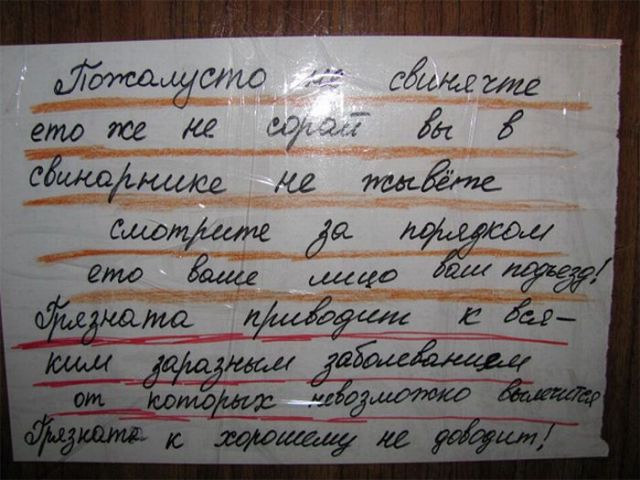 Пожалусто не свинячте
ето же не сорай вы в
свинарнике не жывёте
смотрите за порядком
ето ваше лицо ваш подьезд!
Грязната приводит к вся-
ким заразным заболеванием
от которых невозможно вылечится
Грязната к хорошему не доводит!